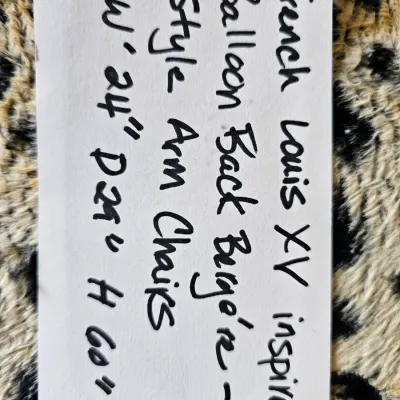 rench Louis XV inspir
Balloon Back Bergére -
Style Arm Chairs
W' 24" D 29" H 60"